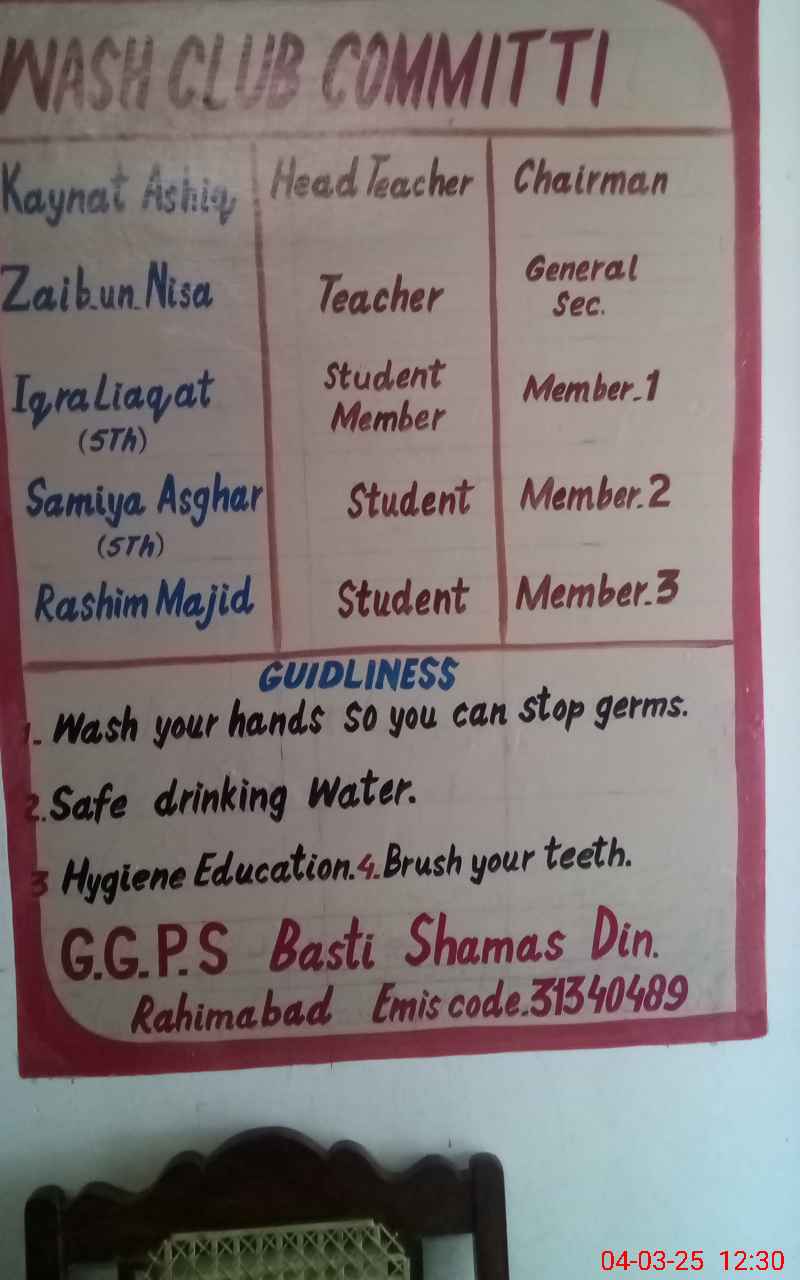 WASH CLUB COMMITTI
Kaynat Ashiq Head Teacher Chairman
Zaib.un.Nisa Teacher General Sec.
Iqra Liaqat (5Th) Student Member Member.1
Samiya Asghar (5Th) Student Member.2
Rashim Majid Student Member.3
GUIDLINESS
1. Wash your hands so you can stop germs.
2. Safe drinking Water.
3 Hygiene Education. 4. Brush your teeth.
G.G.P.S Basti Shamas Din.
Rahimabad Emis code.31340489
04-03-25 12:30